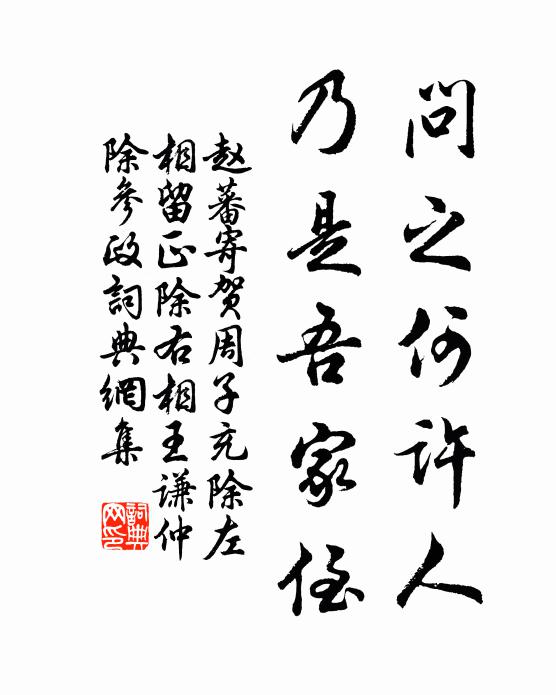 問之何許人
乃是吾家侄
赵蕃寄贺周子充除左
相留正除右相王谦仲
除參政詞典網集
詞典
网印